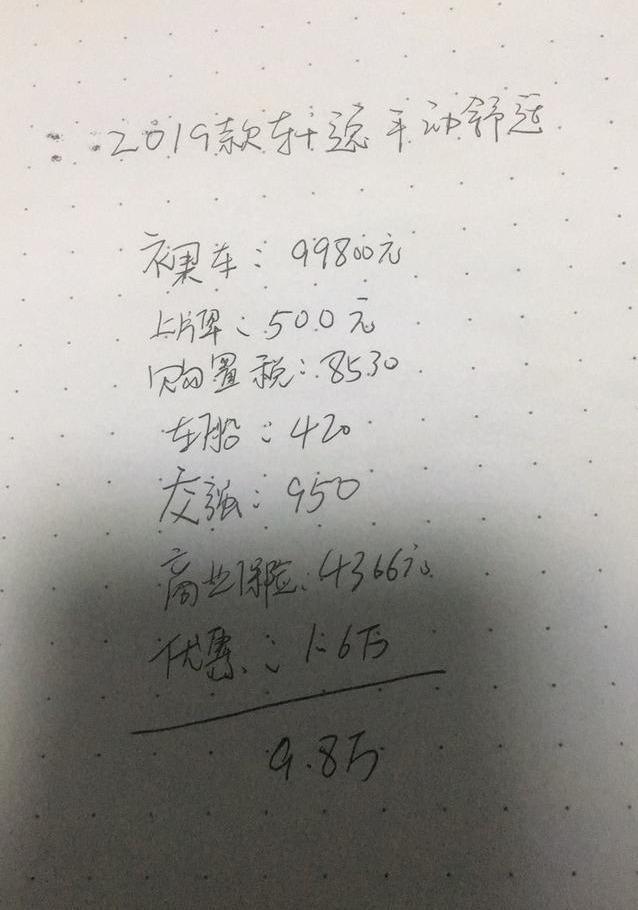 2019款轩逸手动舒适
裸车：99800元
上牌：500元
购置税：8530
车船：420
交强：950
商业保险：4366元
优惠：1.6万
9.8万